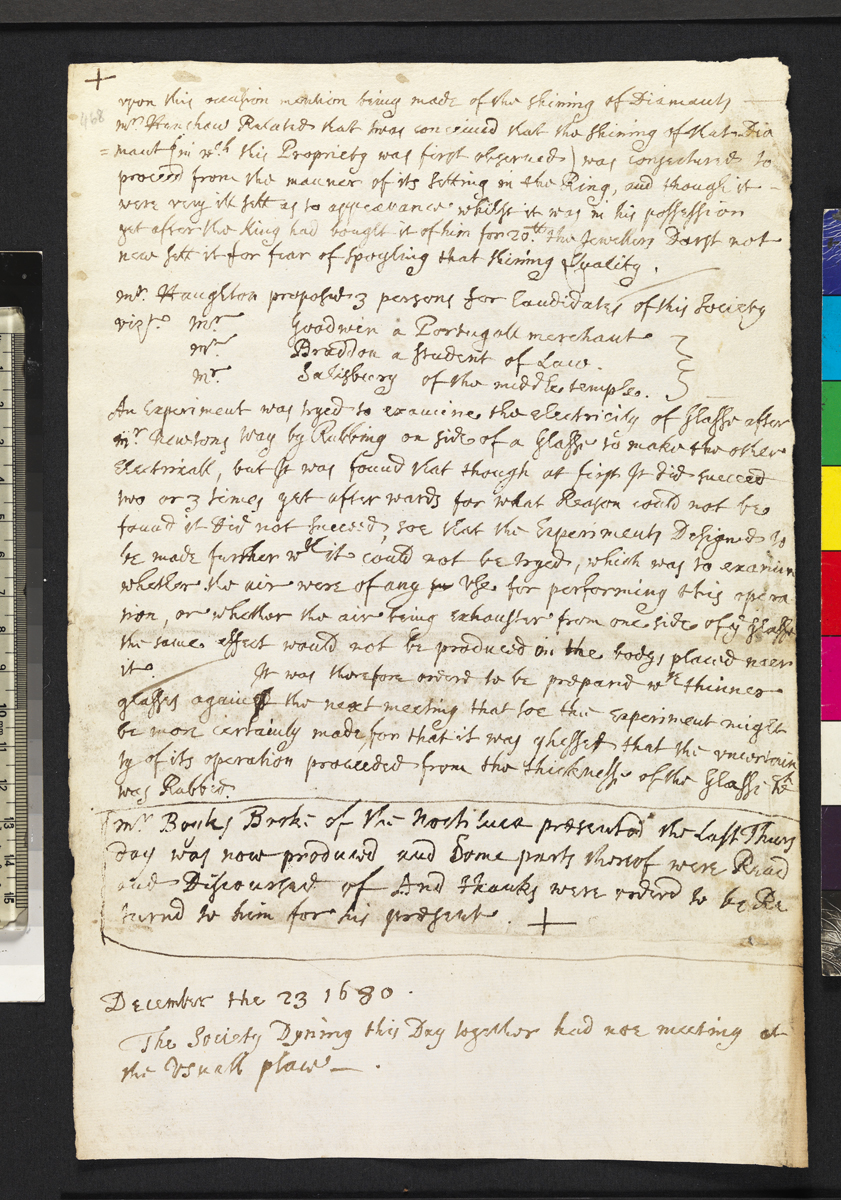 +
468
upon this occasion mention being made of the shining of Diamants
mr. Henshaw Related that twas conceived that the shining of that Dia
= mant (in wch. this Propriety was first observed) was conjectured to
proceed from the manner of its setting in the Ring, and though it
were very ill sett as to appearance whilst it was in his possession
yet after the King had bought it of him for 20 the Jewellers Durst not
new sett it for fear of spoyling that shining Quality.
mr. Haughton proposed 3 persons for Candidates of this Society
vizt. mr. Goodwin a Portugall merchant
mr. Braddon a student of Law.
mr. Salisbury of the middle temple.
An Experiment was tryed to examine the electricity of Glasse after
mr. Newtons way by Rubbing on side of a Glasse to make the other
Electricall, but It was found that though at first It did succeed
two or 3 times yet after wards for what Reason could not be
found it did not succeed, soe that the Experiments Designed to
be made further wth it could not be tryed, which was to examin
whether the air were of any Use for performing this opera
tion, or whether the air being exhausted from one side of ye Glasse
the same effect would not be produced in the bodys placed neer
it. It was therefore orderd to be prepard wth thinner
glasses against the next meeting that soe the Experiment might
be more certainly made, for that it was ghessed that the uncertain
ty of its operation proceeded from the thicknesse of the Glasse yt
was Rubbed.
mr. Boyles Booke of the Noctiluca presented the Last Thurs
day was now produced and Some parts thereof were Read
and Discoursed of And thanks were orderd to be Re
turnd to him for his present. +
December the 23 1680.
The Society Dyning this Day together had noe meeting at
the Usuall place.